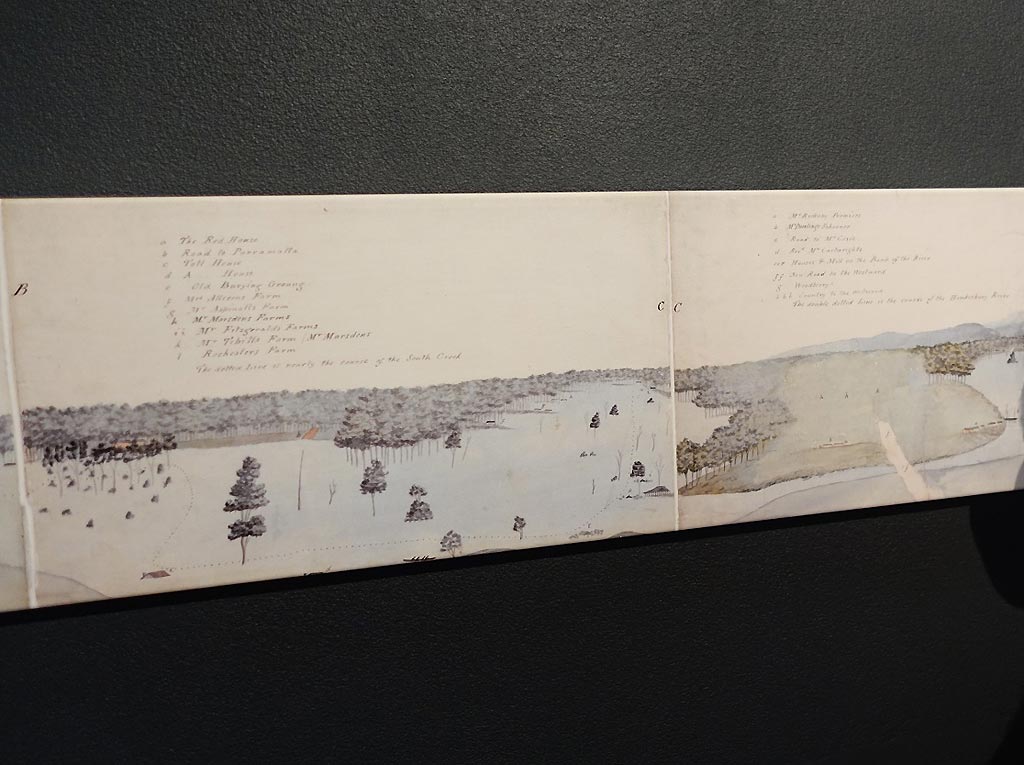 B
a The Red House
b Road to Parramatta
c Toll House
d A House
e Old Burying Ground
f Mrs Farm
g Mr Farm
h Mr Marsdens Farms
ii Mr Fitzgeralds Farms
k Mr Farm Mr Marsdens
l Rochesters Farm
The dotted Line is nearly the course of the South Creek
C
C
a Mr
b Mr
c Road to Mr
d Revd Mr Cartwrights
Houses & Mill on the Bank of the River
ff New Road to the Westward
g
hhh Country to the
The double dotted Line is the course of the Hawkesbury River